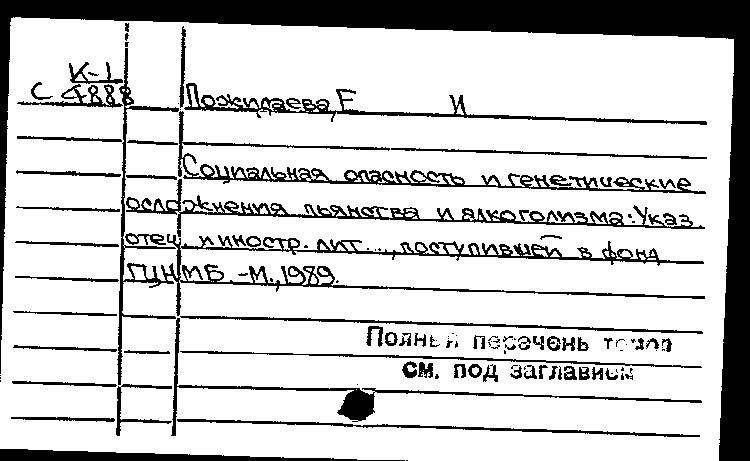 К-1
С 4888 Пожидаева, Е И
Социальная опасность и генетические
осложнения пьянства и алкоголизма: Указ.
отеч. и иностр. лит..., поступившей в фонд
ГЦНМБ. -М., 1989.
Полный перечень томов
см. под заглавием